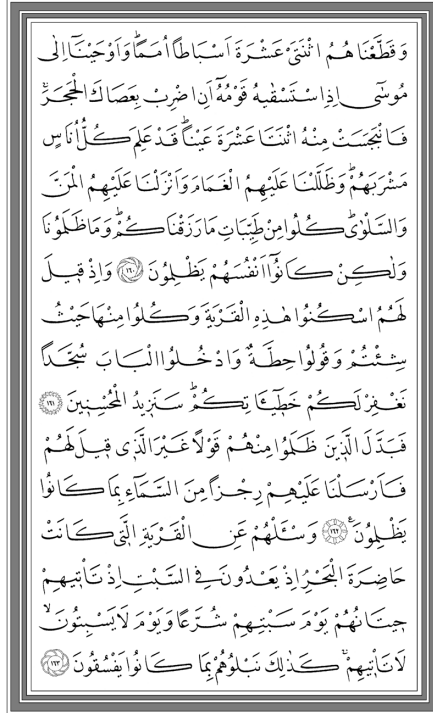 وَقَطَّعْنَاهُمُ اثْنَتَىْ عَشْرَةَ اَسْبَاطًا اُمَمًاۜ وَاَوْحَيْنَٓا اِلٰى
مُوسٰٓى اِذِ اسْتَسْقٰيهُ قَوْمُهُٓ اَنِ اضْرِبْ بِعَصَاكَ الْحَجَرَۚ
فَانْبَجَسَتْ مِنْهُ اثْنَتَا عَشْرَةَ عَيْنًاۜ قَدْ عَلِمَ كُلُّ اُنَاسٍ
مَشْرَبَهُمْۜ وَظَلَّلْنَا عَلَيْهِمُ الْغَمَامَ وَاَنْزَلْنَا عَلَيْهِمُ الْمَنَّ
وَالسَّلْوٰىۜ كُلُوا مِنْ طَيِّبَاتِ مَا رَزَقْنَاكُمْۜ وَمَا ظَلَمُونَا
وَلٰكِنْ كَانُٓوا اَنْفُسَهُمْ يَظْلِمُونَ ﴿١٦٠﴾ وَاِذْ قٖيلَ
لَهُمُ اسْكُنُوا هٰذِهِ الْقَرْيَةَ وَكُلُوا مِنْهَا حَيْثُ
شِئْتُمْ وَقُولُوا حِطَّةٌ وَادْخُلُوا الْبَابَ سُجَّدًا
نَغْفِرْ لَكُمْ خَطٖٓيـَٔاتِكُمْۜ سَنَزٖيدُ الْمُحْسِنٖينَ ﴿١٦١﴾
فَبَدَّلَ الَّذٖينَ ظَلَمُوا مِنْهُمْ قَوْلًا غَيْرَ الَّذٖى قٖيلَ لَهُمْ
فَاَرْسَلْنَا عَلَيْهِمْ رِجْزًا مِنَ السَّمَٓاءِ بِمَا كَانُوا
يَظْلِمُونَ۟ ﴿١٦٢﴾ وَسْـَٔلْهُمْ عَنِ الْقَرْيَةِ الَّتٖى كَانَتْ
حَاضِرَةَ الْبَحْرِۢ اِذْ يَعْدُونَ فِى السَّبْتِ اِذْ تَاْتٖيهِمْ
حٖيتَانُهُمْ يَوْمَ سَبْتِهِمْ شُرَّعًا وَيَوْمَ لَا يَسْبِتُونَۙ
لَا تَاْتٖيهِمْۚ كَذٰلِكَ نَبْلُوهُمْ بِمَا كَانُوا يَفْسُقُونَ ﴿١٦٣﴾